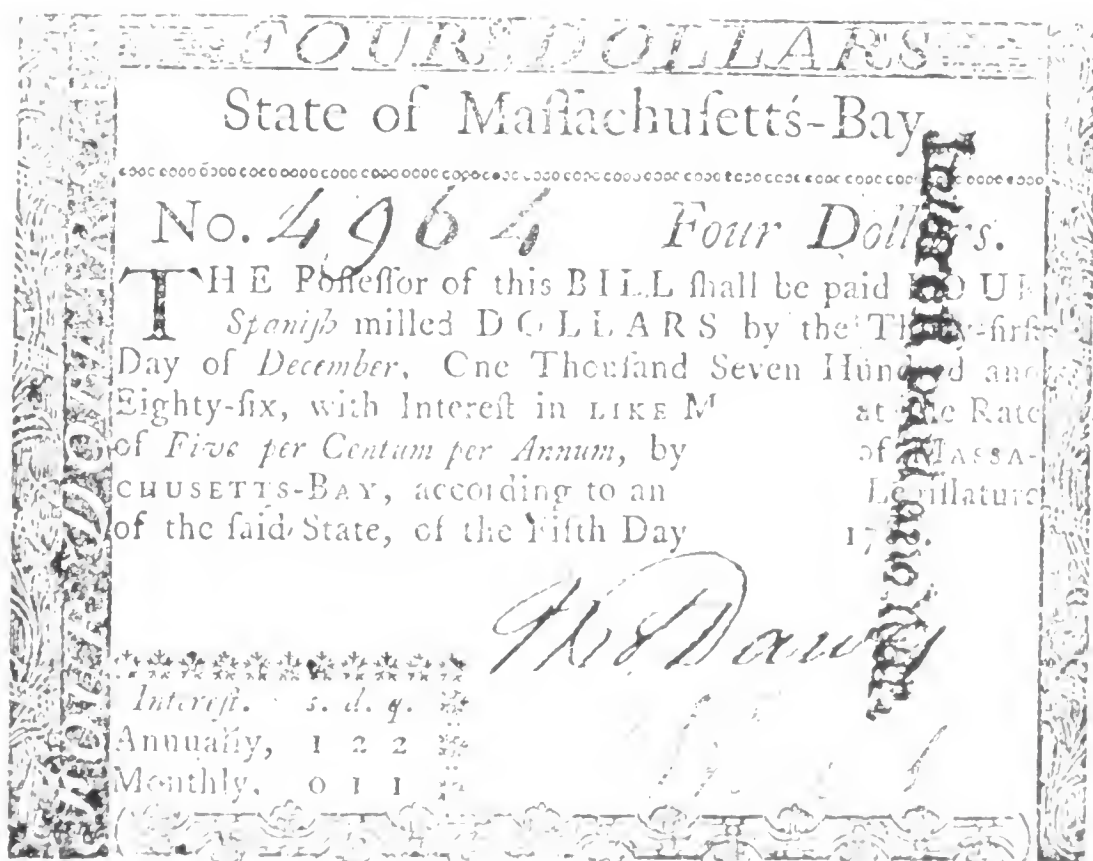 FOUR DOLLARS
State of Maſſachuſetts-Bay.
No. 4964 Four Dollars.
THE Poſſeſſor of this BILL ſhall be paid FOUR
Spaniſh milled DOLLARS by the Thirty-firſt
Day of December, One Thouſand Seven Hundred and
Eighty-ſix, with Intereſt in LIKE M at the Rate
of Five per Centum per Annum, by of MASSA-
CHUSETTS-BAY, according to an Legiſlature
of the ſaid State, of the Fifth Day 17
Intereſt. s. d. q.
Annually, 1 2 2
Monthly, 0 1 1
Intereſt paid one Year.
FOUR DOLLARS